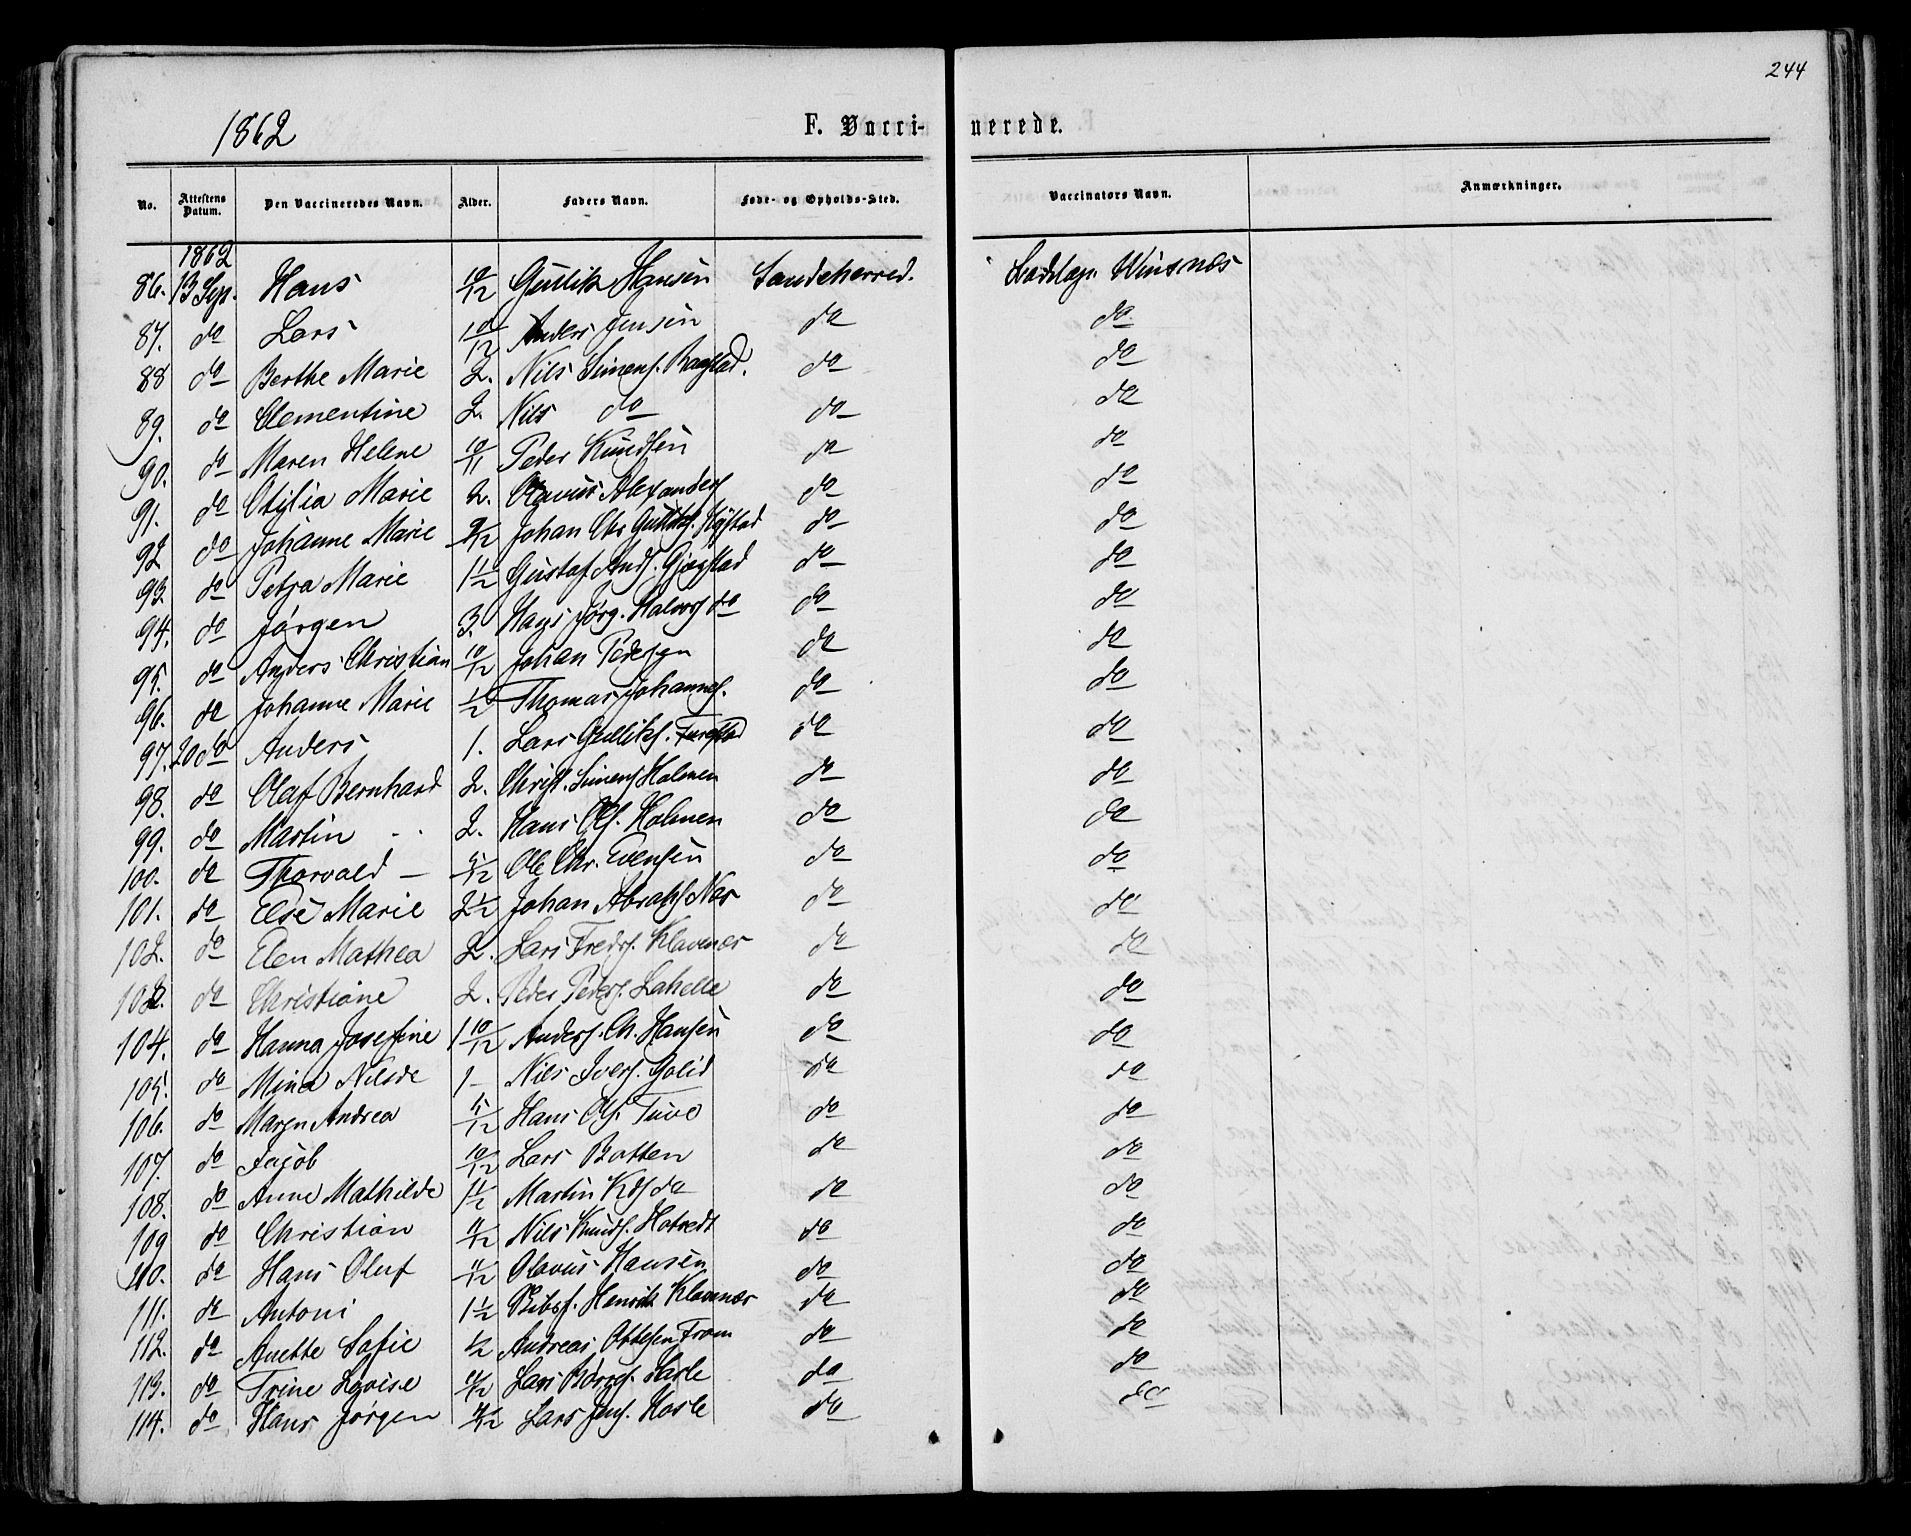 244
1862 F. Vacci- nerede.
No. Attestens Datum. Den Vaccineredes Navn. Alder. Faders Navn. Føde- og Opholds-Sted. Vaccinators Navn. Anmærkninger.
1862
86. 13 Sep. Hans 10/12 Gullik Hansen Sandeherred. Winsnæs
87. do Lars 1 10/12 Anders Jensen do do
88 do Berthe Marie 2. Nils Simens. do do
89. do Clementine 2. Nils do do do
90. do Maren Helene 10/11 Peder Knudsen do do
91. do Otilia Marie 2. Olavus Alexanders do do
92 do Johanne Marie 9/12 Johan Chr Gulliks. do do
93 do Petra Marie 1 1/2 Gustaf Ands. Gjøgstad do do
94. do Jørgen 3. Hans Jørg. Halvors do do do
95. do Anders Christian 10/12 Johan Pedersen do do
96. do Johanne Marie 1/2 Thomas Johannes. do do
97. 20 do Anders 1. Lars Gulliks. Furestad do do
98. do Olaf Bernhard 2. Christ. Simens Holmen do do
99. do Martin 2. Hans Ols. Holmen do do
100. do Thorvald – 5/12 Ole Chr. Evensen do do
101. do Else Marie 2 1/2 Johan Abrahs Næs do do
102. do Elen Mathea 2. Lars Freds. Klavenæs do do
103. do Christiane 2. Peder Peders. Lahelle do do
104. do Hanna Josefine 1 10/12 Anders. Ch. Hansen do do
105. do Mina Nilsde 1 – Nils Ivers. Golid do do
106. do Maren Andrea 5/12 Hans Ols. Tuve do do
107. do Jacob 10/12 Lars Botten do do
108. do Anne Mathilde 1 1/2 Martin do do do
109 do Christian 11/12 Nils Knuds. Hotvedt do do
110. do Hans Oluf 11/12 Olavus Hansen do do
111. do Antoni 1 1/2 Henrik Klavenæs do do
112. do Anette Sofie 1/2 Andreas Ottesen Fram do do
113. do Trine Lovise Lars do do
114. do Hans Jørgen Lars Jens. Hasle do do